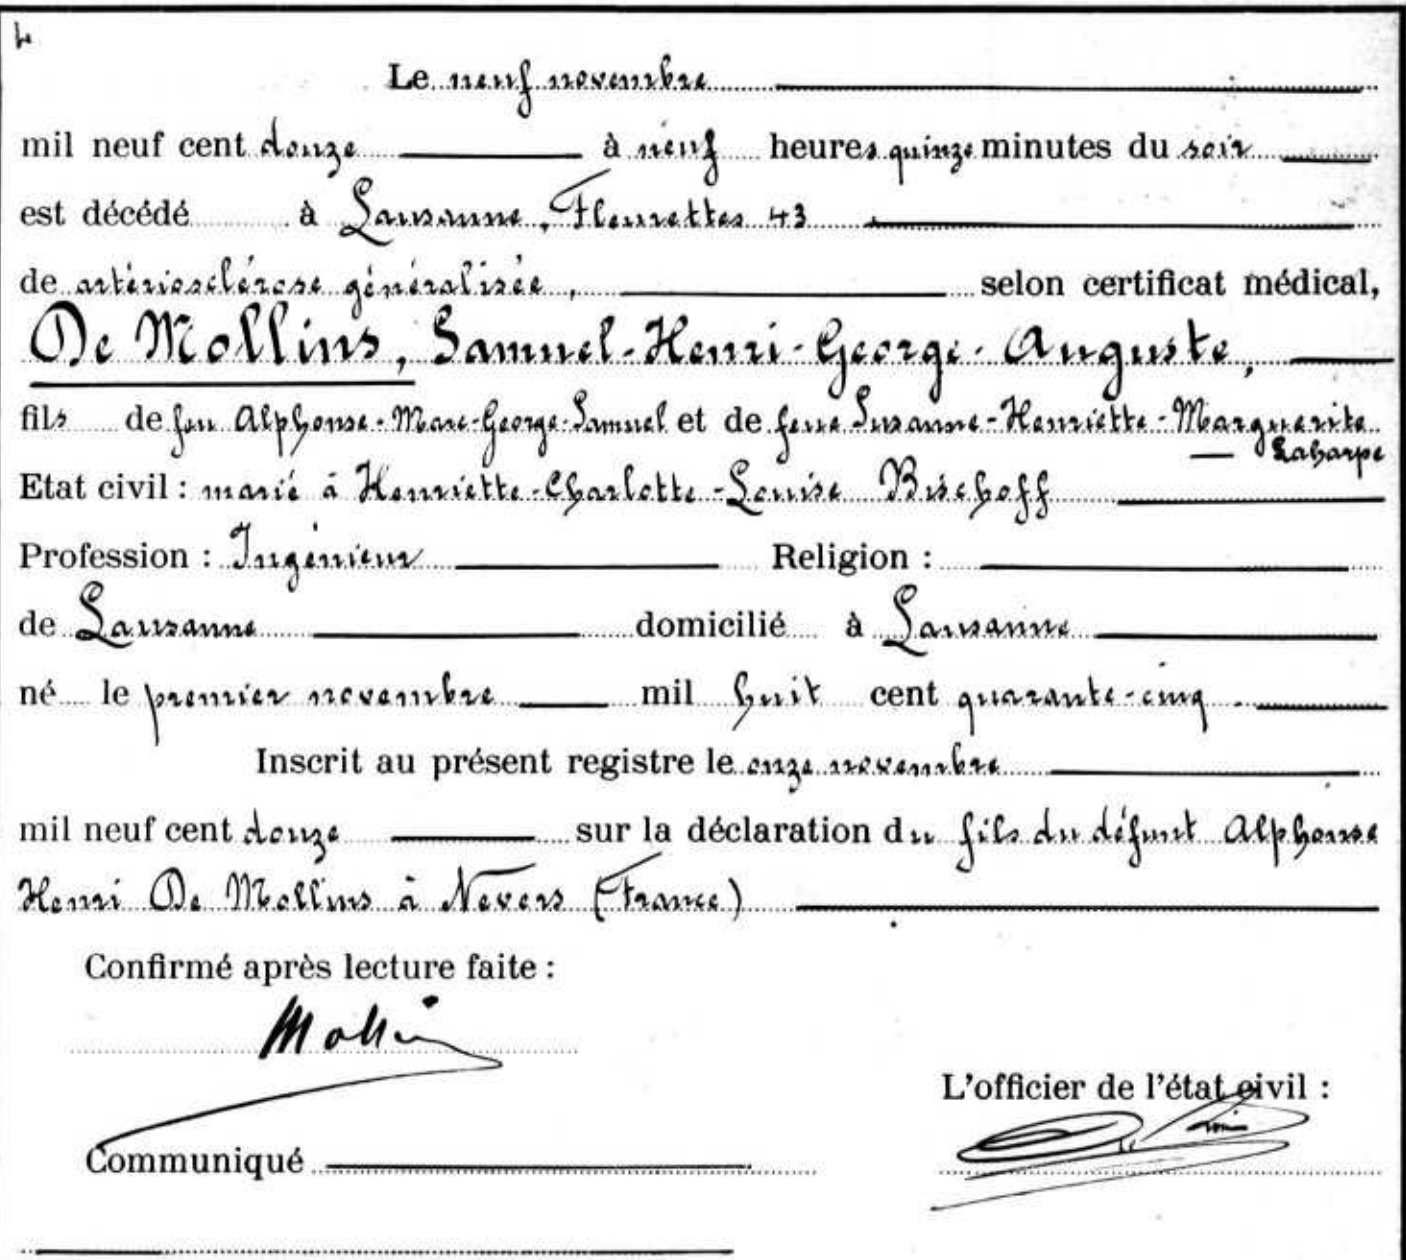 Le neuf novembre
mil neuf cent douze à neuf heures quinze minutes du soir
est décédé à Lausanne, Fleurettes 43
de artériosclérose généralisée, selon certificat médical,
De Mollins, Samuel-Henri-George-Auguste,
fils de feu Alphonse-Marc-George-Samuel et de feue Susanne-Henriette-Marguerite
Laharpe
Etat civil : marié à Henriette-Charlotte-Louise Bischoff
Profession : Ingénieur Religion :
de Lausanne domicilié à Lausanne
né le premier novembre mil huit cent quarante-cinq.
Inscrit au présent registre le onze novembre
mil neuf cent douze sur la déclaration du fils du défunt Alphonse
Henri De Mollins à Nevers (France)
Confirmé après lecture faite :
Mollin
L'officier de l'état civil :
Communiqué